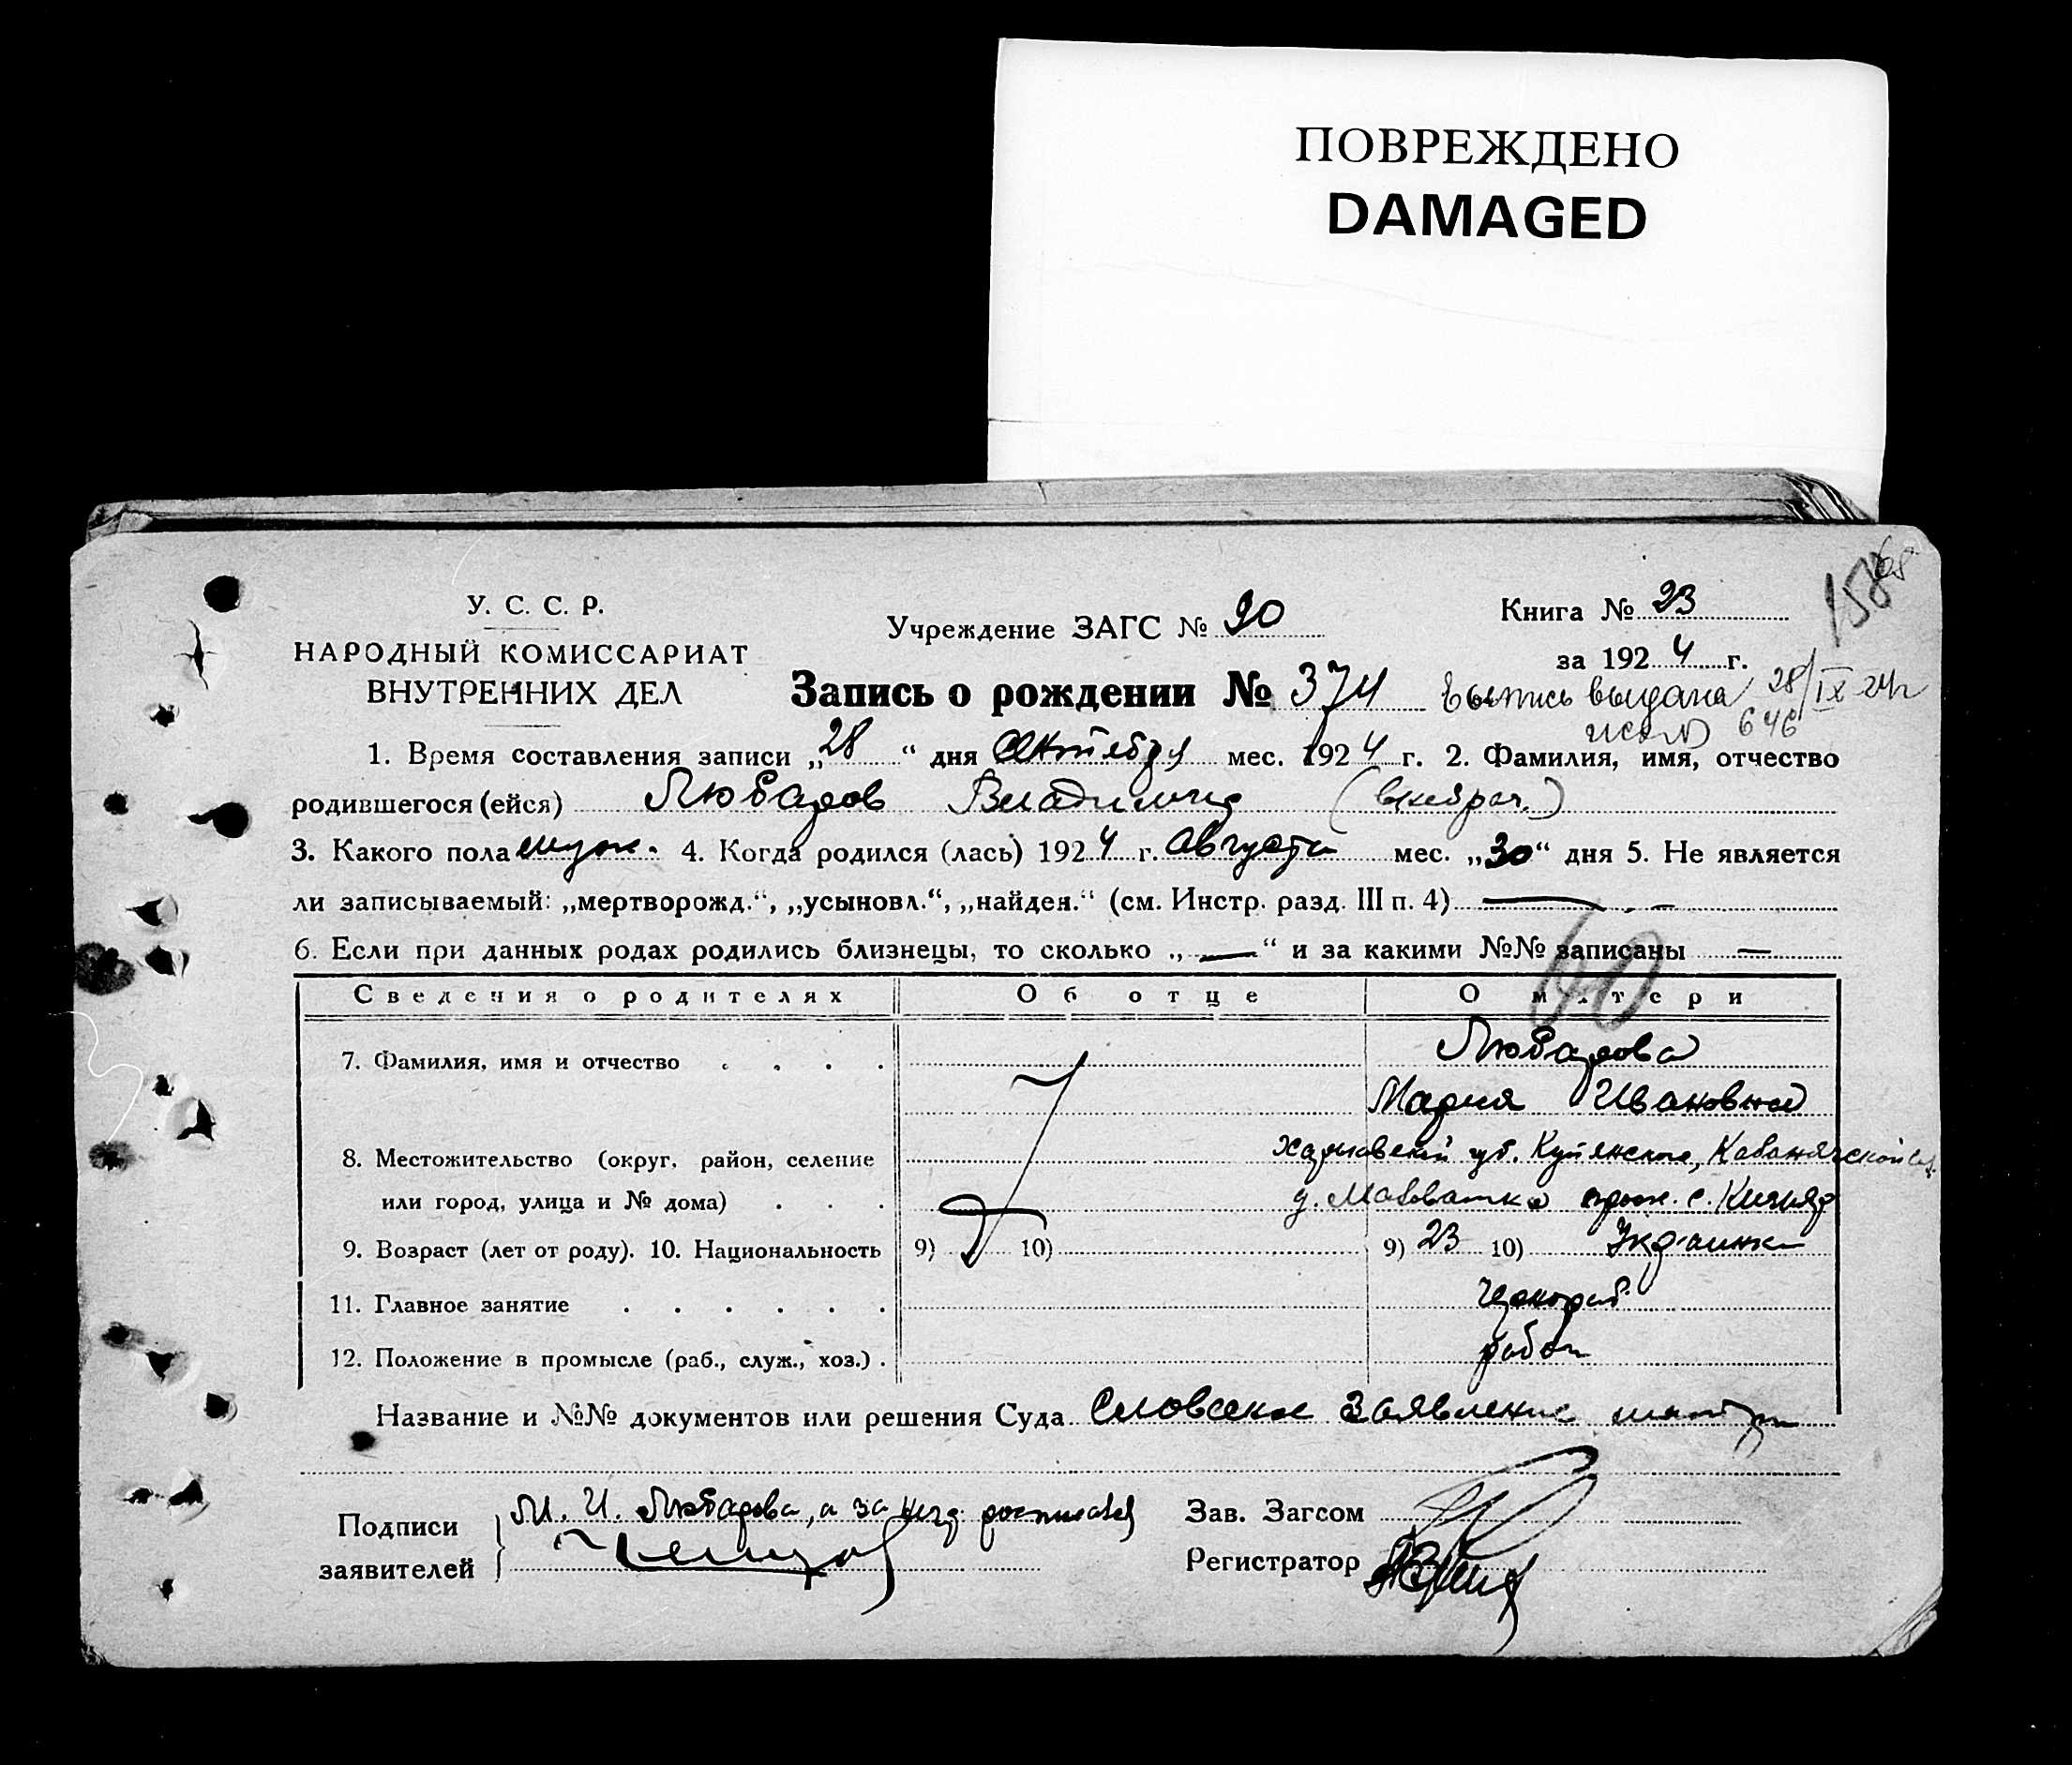 ПОВРЕЖДЕНО
DAMAGED
158
У. С. С. Р.
НАРОДНЫЙ КОМИССАРИАТ
ВНУТРЕННИХ ДЕЛ
Учреждение ЗАГС № 20
Книга № 23
за 1924 г.
Запись о рождении № 374 выпись выдана 28/IX 24г
646
1. Время составления записи „28“ дня Октября мес. 1924 г. 2. Фамилия, имя, отчество
родившегося (ейся) Любаров Владимир (внебрач.)
3. Какого пола муж. 4. Когда родился (лась) 1924 г. Августа мес. „30“ дня 5. Не является
ли записываемый: „мертворожд.“, „усыновл.“, „найден.“ (см. Инстр. разд. III п. 4) —
6. Если при данных родах родились близнецы, то сколько „—“ и за какими №№ записаны —
Сведения о родителях Об отце О матери
7. Фамилия, имя и отчество . . . . Любарова
Мария Ивановна
8. Местожительство (округ, район, селение Харьковской губ. Купянского,
или город, улица и № дома) . . . д.
9. Возраст (лет от роду). 10. Национальность 9) 10) 9) 23 10) Украинка
11. Главное занятие . . . . . . чернораб.
12. Положение в промысле (раб., служ., хоз.) . рабоч
Название и №№ документов или решения Суда Словесное заявление матери
Подписи
заявителей
М. И. Любарова, а за расписался
Зав. Загсом
Регистратор